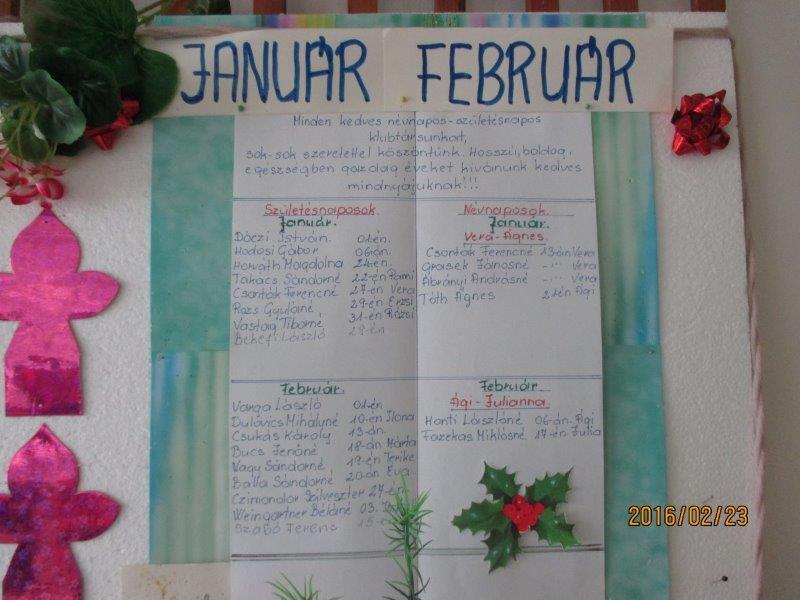 JANUÁR FEBRUÁR
Minden kedves névnapos-születésnapos
klubtársunkat,
sok-sok szeretettel köszöntünk. Hosszú, boldog,
egészségben gazdag éveket kívánunk kedves
mindnyájuknak!!!
Születésnaposok
Január.
Dóczi István. 01-én.
Hodosi Gábor 06-án.
Horváth Magdolna 24-én.
Takács Sándorné 22-én
Csonták Ferencné 27-én Vera
Rozs Gyuláné 29-én Erzsi
Vastag Tiborné 31-én Rózsi
Békefi László 29-én
Névnaposok.
Január.
Vera-Ágnes.
Csonták Ferencné 13-án Vera
Grasek Jánosné -"- Vera
Ábrányi Andrásné -"- Vera
Tóth Ágnes 21-én Ági
Február.
Varga László 01-én.
Dulavics Mihályné 10-én Ilona
Csukás Károly 13-án.
Bucs Jenőné 18-án Márta
Vagy Sándorné 19-én Terike
Balla Sándorné 20-án Éva
Czimondor Szilveszter 27-én
Weingartner Béláné 03.
Szabó Ferenc
Február.
Ági-Julianna.
Hanti Lászlóné 06-án. Ági
Fazekas Miklósné 17-én Julia
2016/02/23